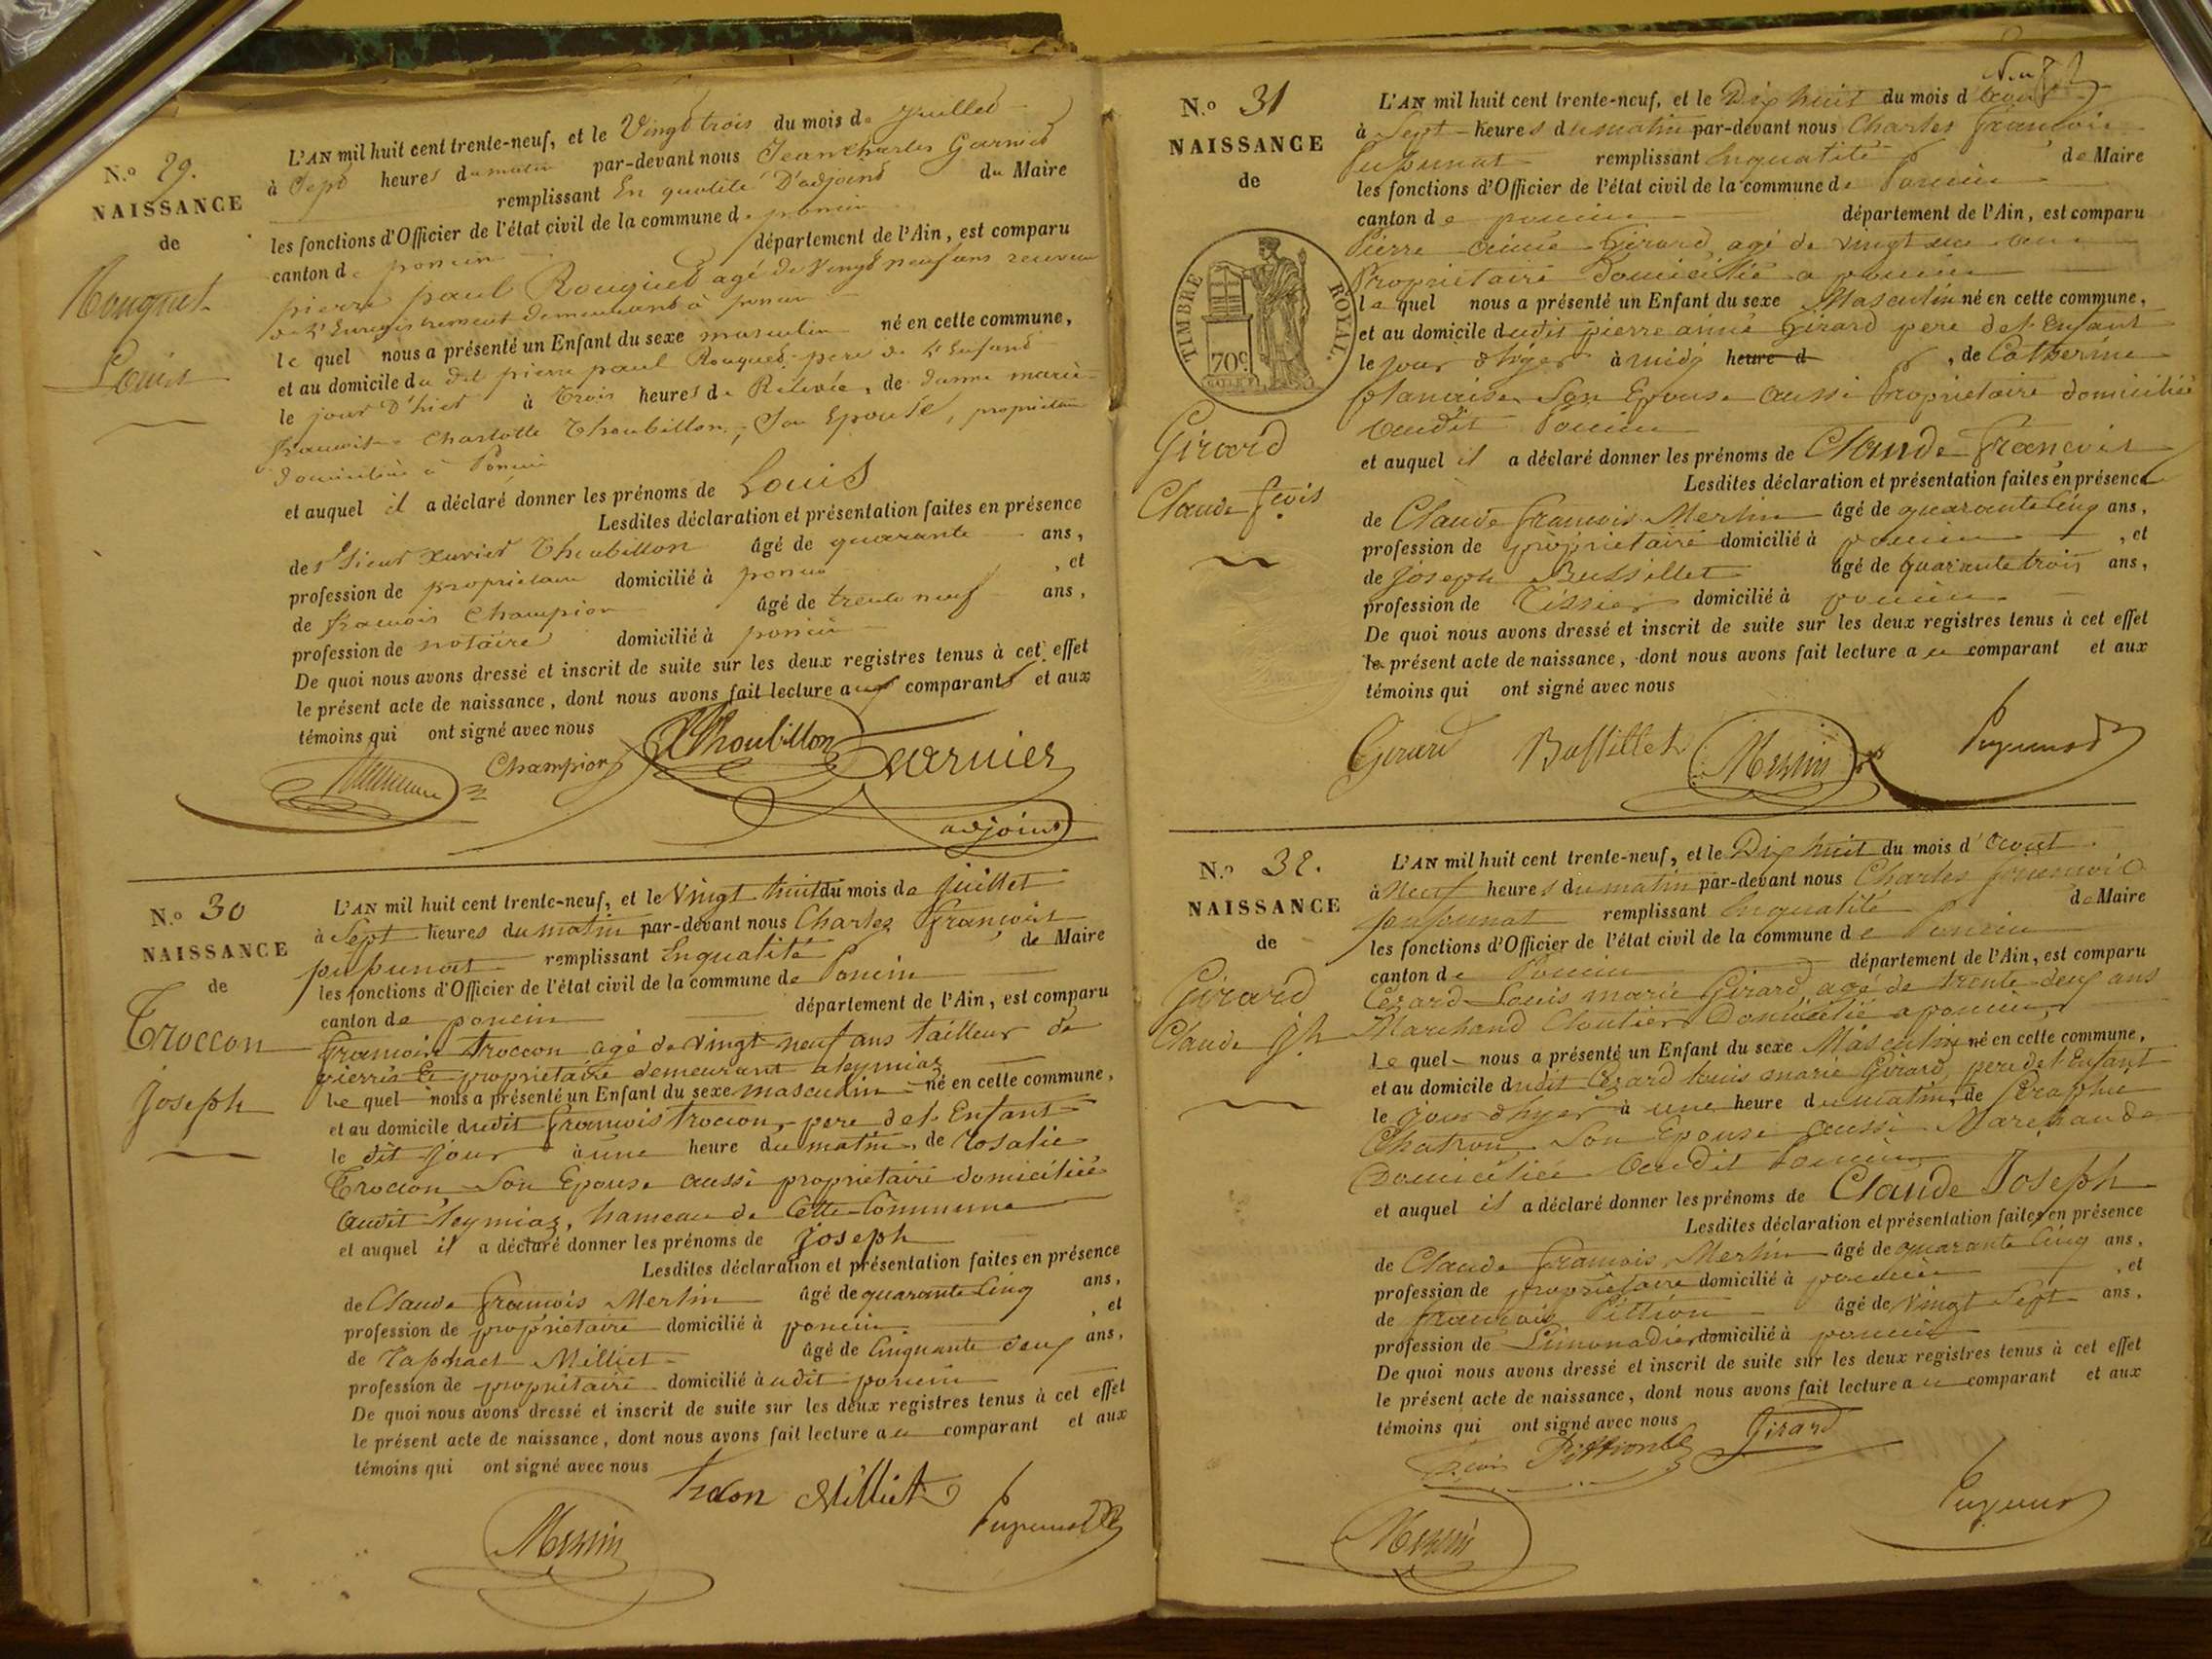 N.o 29.
NAISSANCE
de
Rouquet
Louis
L'AN mil huit cent trente-neuf, et le Vingt trois du mois de Juillet
à Sept heures du matin par-devant nous Jean Charles Garnier
remplissant En qualité D'adjoint du Maire
les fonctions d'Officier de l'état civil de la commune de poncin
canton de poncin département de l'Ain, est comparu
pierre paul Rouquet agé de Vingt neuf ans receveur
de l'Enregistrement demeurant à poncin
le quel nous a présenté un Enfant du sexe masculin né en cette commune,
et au domicile du dit pierre paul Rouquet pere de l'Enfant
le jour D'hier à trois heures de Relevée, de damme marie
francoise Charlotte Thoubillon, Son Epouse, propriétaire
domiciliée à Poncin
et auquel il a déclaré donner les prénoms de Louis
Lesdites déclaration et présentation faites en présence
de s Sieur Xavier Thoubillon âgé de quarante ans,
profession de propriétaire domicilié à poncin , et
de francois Champion âgé de trente neuf ans,
profession de notaire domicilié à poncin
De quoi nous avons dressé et inscrit de suite sur les deux registres tenus à cet effet
le présent acte de naissance, dont nous avons fait lecture aux comparants et aux
témoins qui ont signé avec nous
Champion Thoubillon Garnier
adjoint
N.o 30
NAISSANCE
de
Troccon
Joseph
L'AN mil huit cent trente-neuf, et le Vingt huit du mois de Juillet
à Sept heures du matin par-devant nous Charles François
pupunat remplissant En qualité de Maire
les fonctions d'Officier de l'état civil de la commune de Poncin
canton de poncin département de l'Ain, est comparu
François troccon agé de Vingt neuf ans tailleur de
pierres Et propriétaire demeurant a leymiaz
le quel nous a présenté un Enfant du sexe masculin né en cette commune,
et au domicile dudit François trocon, pere de l'Enfant
le dit jour à une heure du matin, de Rosalie
Trocon, Son Epouse aussi propriétaire domiciliée
audit leymiaz, hameau de Cette Commune
et auquel il a déclaré donner les prénoms de Joseph
Lesdites déclaration et présentation faites en présence
de Claude François Merlin âgé de quarante Cinq ans,
profession de propriétaire domicilié à poncin , et
de Raphael Milliet âgé de Cinquante deux ans,
profession de propriétaire domicilié à udit poncin
De quoi nous avons dressé et inscrit de suite sur les deux registres tenus à cet effet
le présent acte de naissance, dont nous avons fait lecture au comparant et aux
témoins qui ont signé avec nous
Trocon Milliet Pupunat
Merlin
N.o 31
NAISSANCE
de
TIMBRE ROYAL.
70c
Girard
Claude fçois
L'AN mil huit cent trente-neuf, et le Dix huit du mois d'Aout
à Sept heures du matin par-devant nous Charles François
Pupunat remplissant En qualité de Maire
les fonctions d'Officier de l'état civil de la commune de Poncin
canton de poncin département de l'Ain, est comparu
Pierre aimé Girard, agé de vingt ans
Propriétaire Domicilié a poncin
le quel nous a présenté un Enfant du sexe Masculin né en cette commune,
et au domicile dudit pierre aimé Girard pere de l'Enfant
le jour d'hyer à midy heure d , de Catherine
Son Epouse aussi Propriétaire domiciliée
audit Poncin
et auquel il a déclaré donner les prénoms de Claude François
Lesdites déclaration et présentation faites en présence
de Claude François Merlin âgé de quarante Cinq ans,
profession de propriétaire domicilié à poncin , et
de Joseph Bussillet âgé de quarante trois ans,
profession de Tissier domicilié à poncin
De quoi nous avons dressé et inscrit de suite sur les deux registres tenus à cet effet
le présent acte de naissance, dont nous avons fait lecture au comparant et aux
témoins qui ont signé avec nous
Girard Bussillet Merlin Pupunat
N.o 32.
NAISSANCE
de
Girard
Claude Jph
L'AN mil huit cent trente-neuf, et le Dix huit du mois d'Aout
à Neuf heures du matin par-devant nous Charles François
Pupunat remplissant En qualité de Maire
les fonctions d'Officier de l'état civil de la commune de Poncin
canton de Poncin département de l'Ain, est comparu
Cézard Louis marie Girard, agé de trente deux ans
Marchand Cloutier Domicilié a poncin
le quel nous a présenté un Enfant du sexe Masculin né en cette commune,
et au domicile dudit Cézard Louis marie Girard, pere de l'Enfant
le jour d'hyer à une heure du matin, de Séraphie
Chatron Son Epouse aussi Marchande
Domiciliée audit Poncin
et auquel il a déclaré donner les prénoms de Claude Joseph
Lesdites déclaration et présentation faites en présence
de Claude François Merlin âgé de quarante Cinq ans,
profession de propriétaire domicilié à poncin , et
de François Pittion âgé de Vingt Sept ans,
profession de Limonadier domicilié à poncin
De quoi nous avons dressé et inscrit de suite sur les deux registres tenus à cet effet
le présent acte de naissance, dont nous avons fait lecture au comparant et aux
témoins qui ont signé avec nous
Pittion Girard
Merlin Pupunat